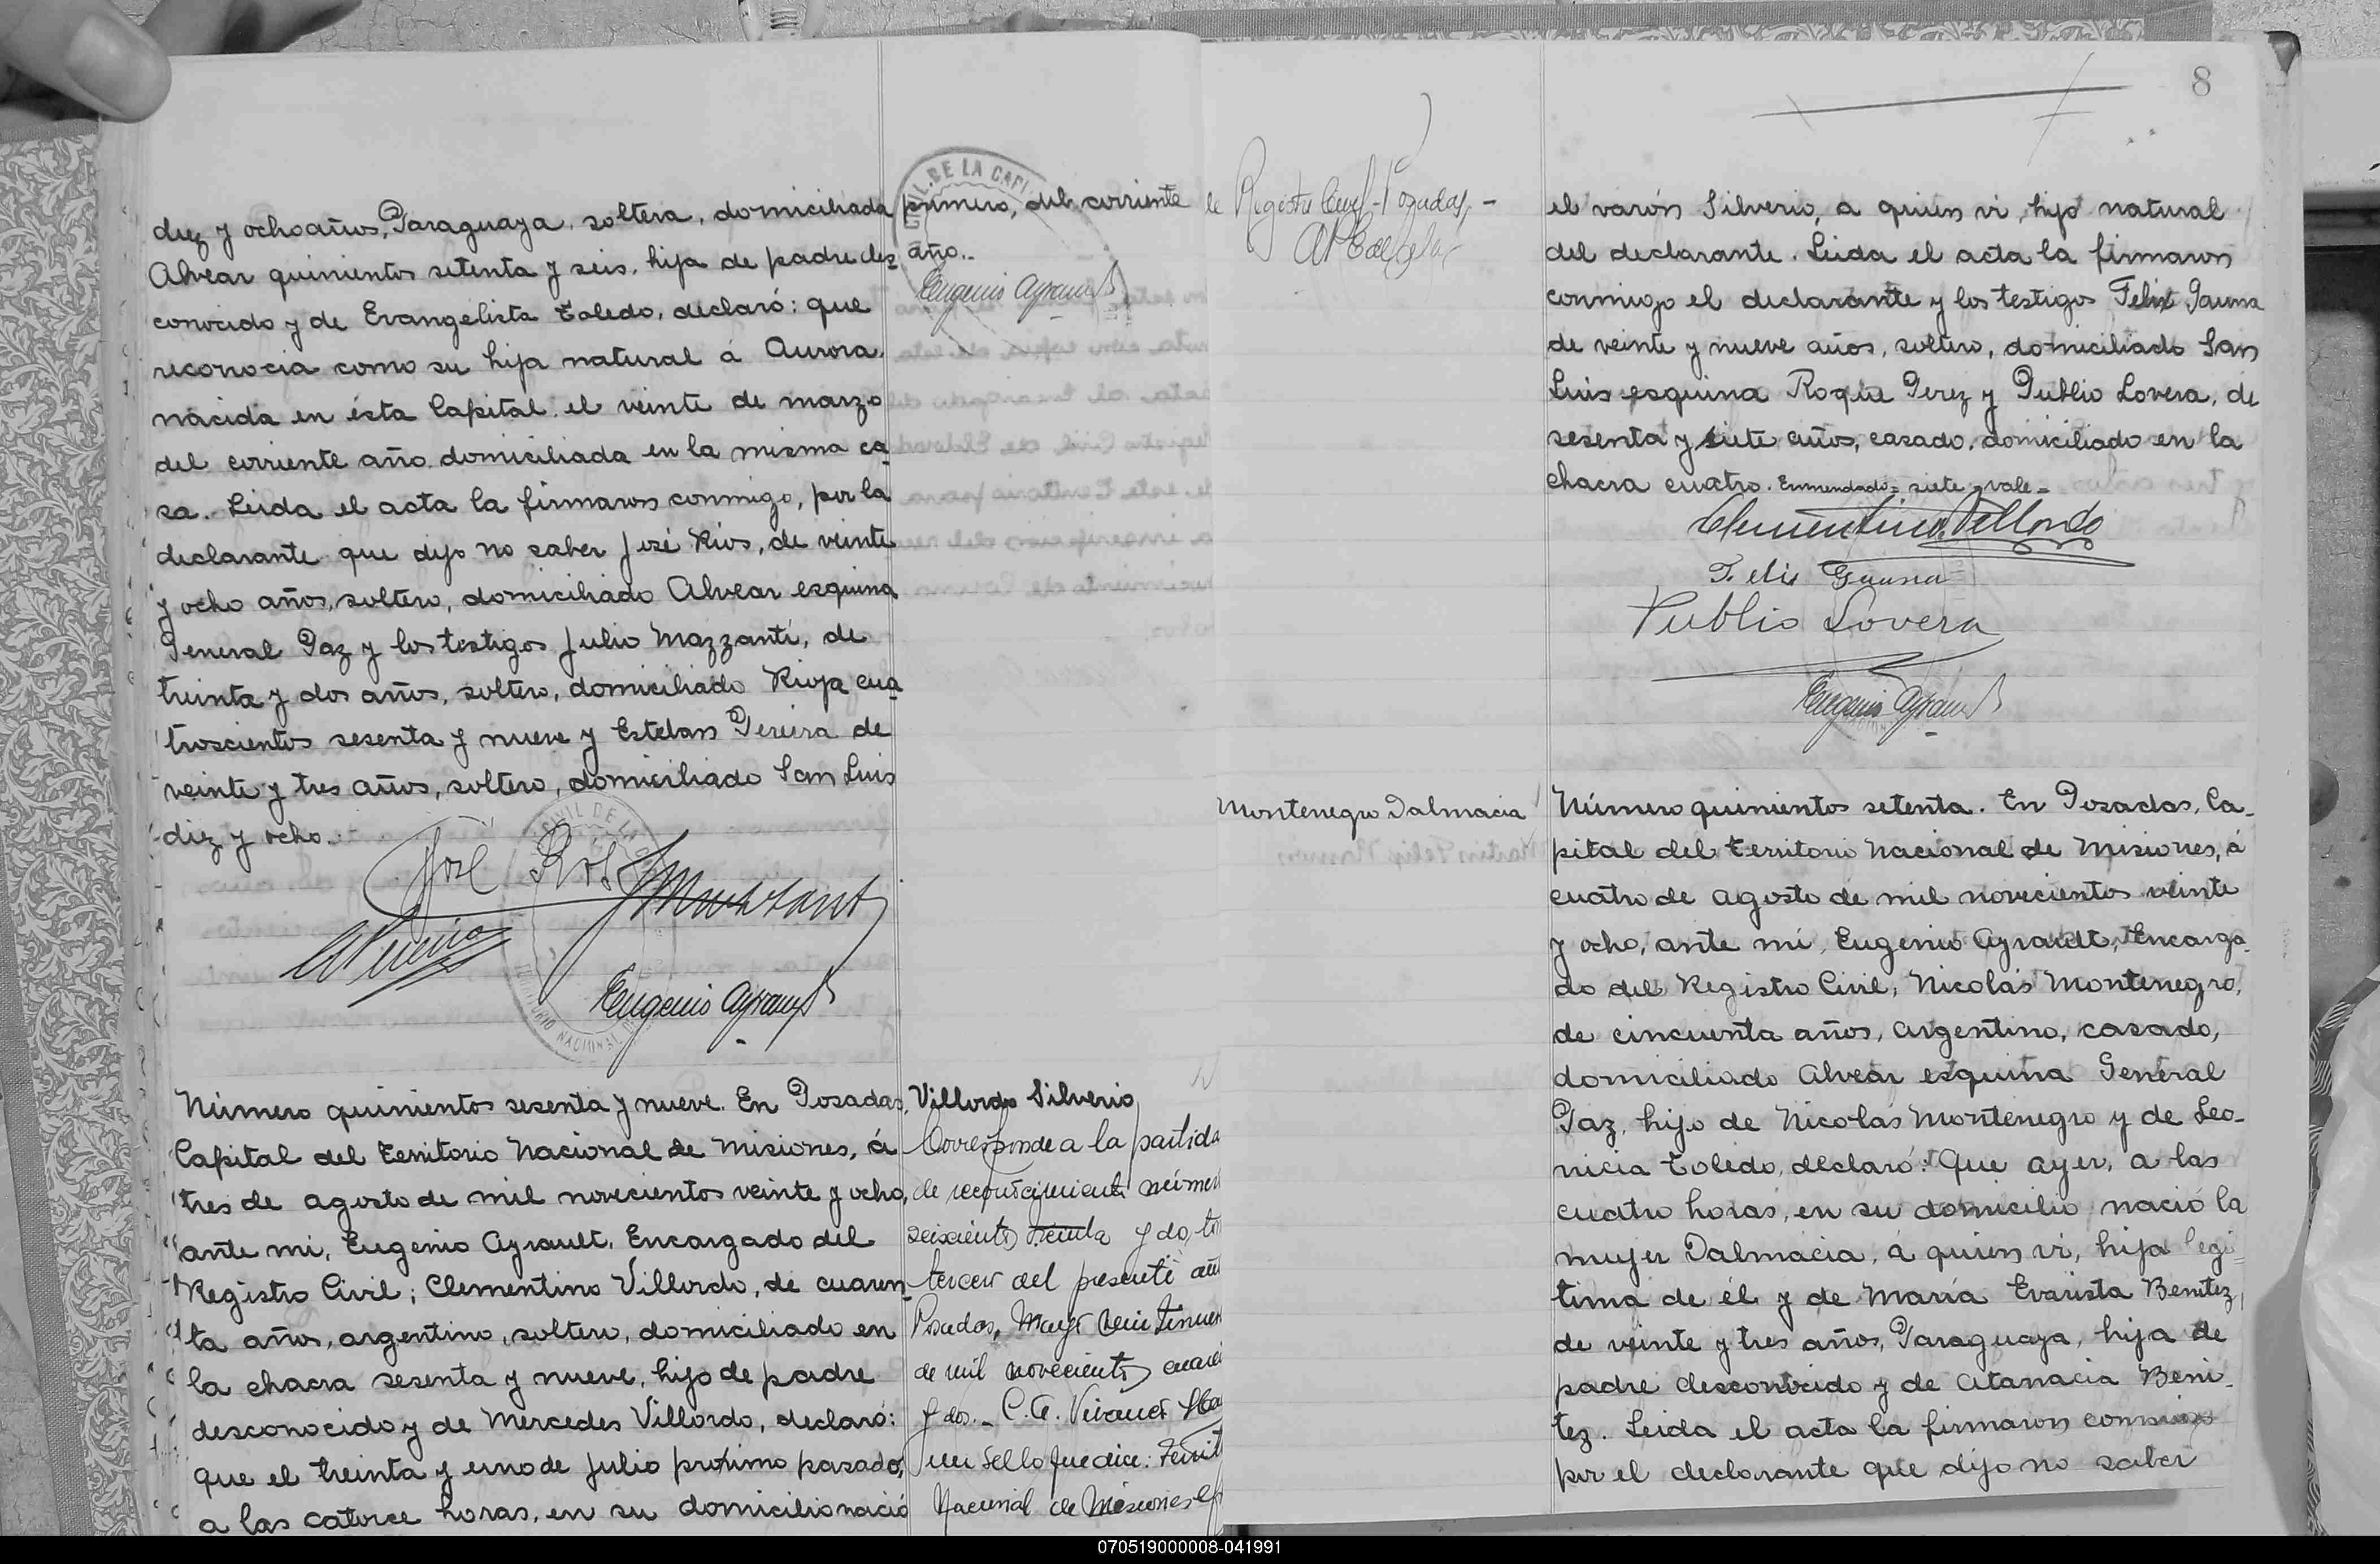 diez y ocho años, Paraguaya, soltera, domiciliada
Alvear quinientos setenta y seis, hija de padre des-
conocido y de Evangelista Toledo, declaró: que
reconocia como su hija natural á Aurora,
nacida en ésta Capital el veinte de marzo
del corriente año domiciliada en la misma ca-
sa. Leida el acta la firmaron conmigo, por la
declarante que dijo no saber José Rios, de veinte
y ocho años, soltero, domiciliado Alvear esquina
General Paz y los testigos Julio Mazzanti, de
treinta y dos años, soltero, domiciliado Rioja cua-
troscientos sesenta y nueve y Esteban Pereira de
veinte y tres años, soltero, domiciliado San Luis
diez y ocho.
José Rios
Eugenio Ayrault
primero, del corriente
año.-
Eugenio Ayrault
CIVIL DE LA CAPI
Número quinientos sesenta y nueve. En Posadas,
Capital del Territorio Nacional de Misiones, á
tres de agosto de mil novecientos veinte y ocho,
ante mi, Eugenio Ayrault, Encargado del
Registro Civil; Clementino Villordo, de cuaren-
ta años, argentino, soltero, domiciliado en
la chacra sesenta y nueve, hijo de padre
desconocido y de Mercedes Villordo, declaró:
que el treinta y uno de julio próximo pasado,
a las catorce horas, en su domicilio nació
Villordo Silverio
Corresponde a la partida
de reconocimiento númer
seiscientos treinta y dos, to
tercero del presente añ
Posadas, Mayo veintinuev
de mil novecientos cuare
y dos.- C. A.
un sello que dice: Territ
Nacional de Misiones
Registro Civil - Posadas, -
8
el varón Silverio, a quien vi, hijo natural
del declarante. Leida el acta la firmaron
conmigo el declarante y los testigos Felix Gauna
de veinte y nueve años, soltero, domiciliado San
Luis esquina Roque Perez y Publio Lovera, de
sesenta y siete años, casado, domiciliado en la
chacra cuatro. Enmendado= siete =vale=
Clementino Villordo
Felis Gauna
Publio Lovera
Eugenio Ayrault
Montenegro Dalmacia
Número quinientos setenta. En Posadas, Ca-
pital del Territorio Nacional de Misiones, á
cuatro de agosto de mil novecientos veinte
y ocho, ante mi, Eugenio Ayrault, Encarga-
do del Registro Civil, Nicolás Montenegro,
de cincuenta años, argentino, casado,
domiciliado Alvear esquina General
Paz, hijo de Nicolás Montenegro y de Leo-
nicia Toledo, declaró: Que ayer, a las
cuatro horas, en su domicilio nació la
mujer Dalmacia, á quien vi, hija legi-
tima de él y de María Evarista Benitez,
de veinte y tres años, Paraguaya, hija de
padre desconocido y de Atanacia Beni-
tez. Leida el acta la firmaron conmigo
por el declarante que dijo no saber
070519000008-041991